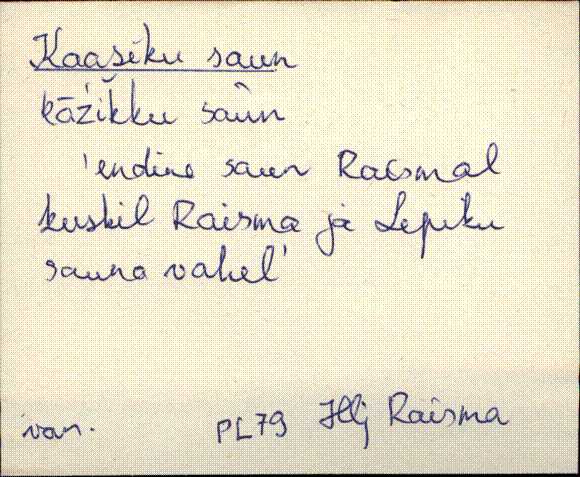 Kaasiku saun
kāžikku saûn
'endine saun Raismal
kuskil Raisma ja Lepiku
sauna vahel'
van. PL79 Hlj Raisma